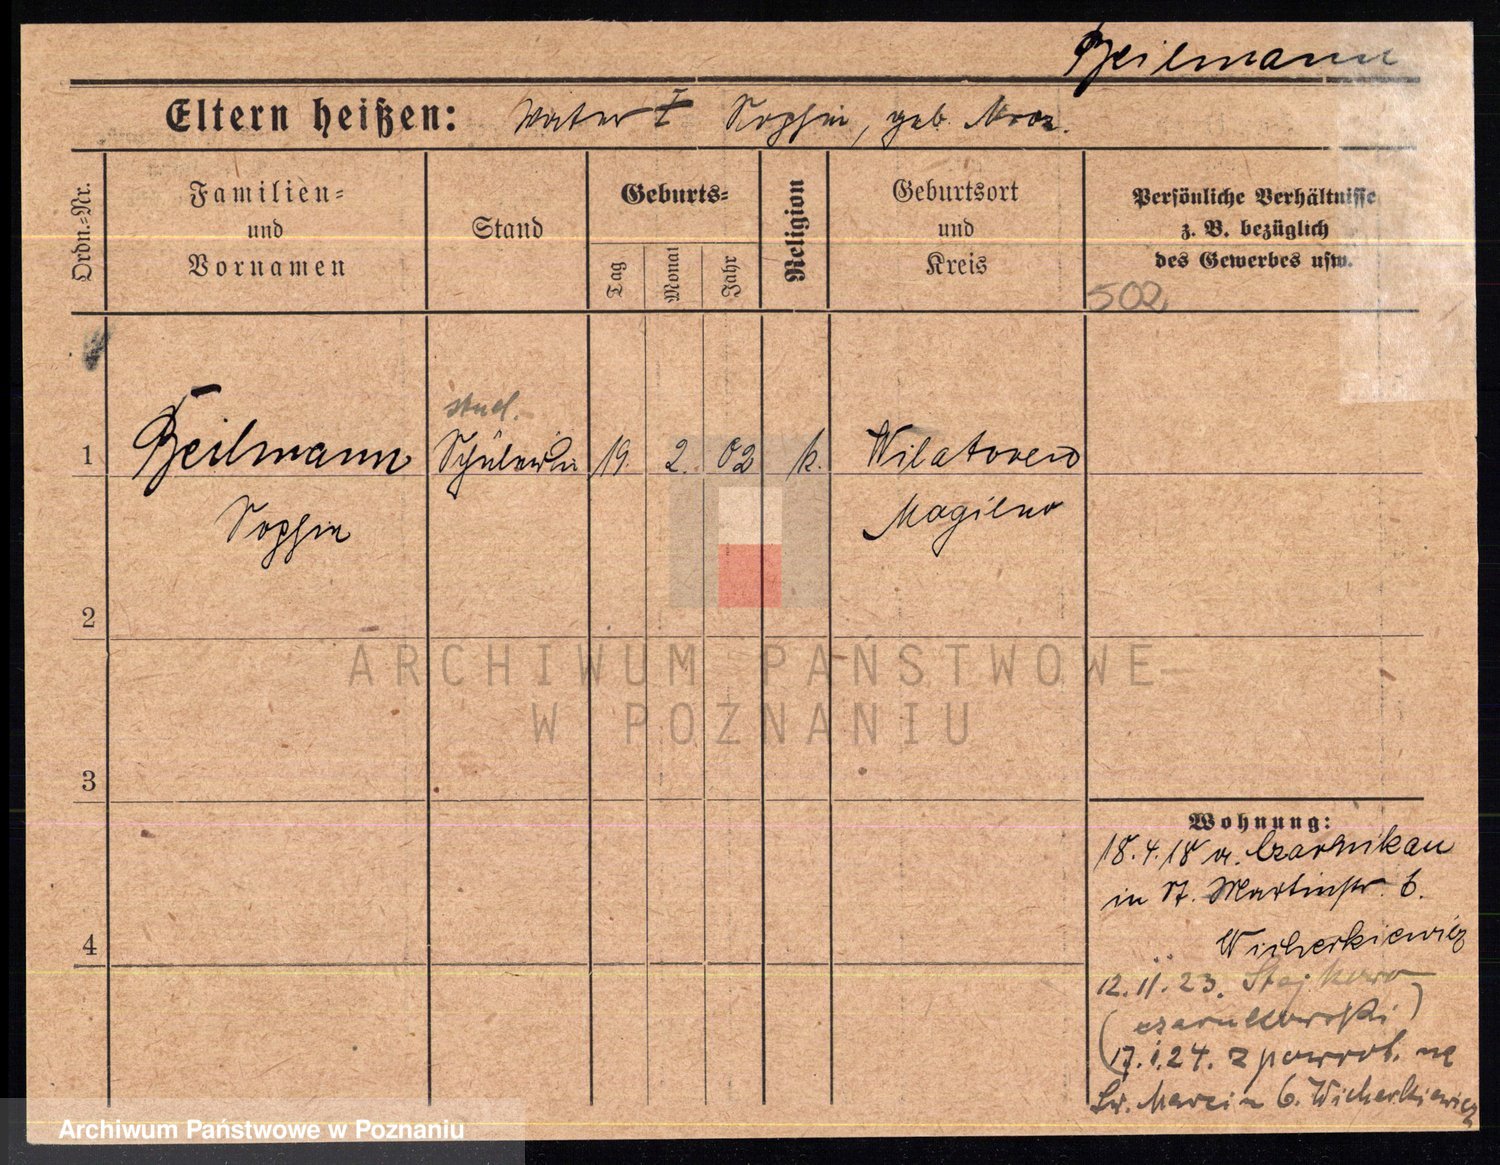 Beilmann
Eltern heißen: Vater † Sophie, geb. Mroz.
Ordn.-Nr.
Familien-
und
Vornamen
Stand
Geburts-
Tag
Monat
Jahr
Religion
Geburtsort
und
Kreis
Persönliche Verhältnisse
z. B. bezüglich
des Gewerbes usw.
502
stud.
1 Beilmann Schülerin 19. 2. 02 k. Wilatowen
Sophie Mogilno
2
3
4
Wohnung:
18.4.18 v. Czarnikau
in St. Martinstr. 6.
Wicherkiewicz
12.II.23. Stajkowo
(czarnkowski)
17.I.24. z powrot. na
Św. Marcin 6. Wicherkiewicz
ARCHIWUM PAŃSTWOWE
W POZNANIU
Archiwum Państwowe w Poznaniu